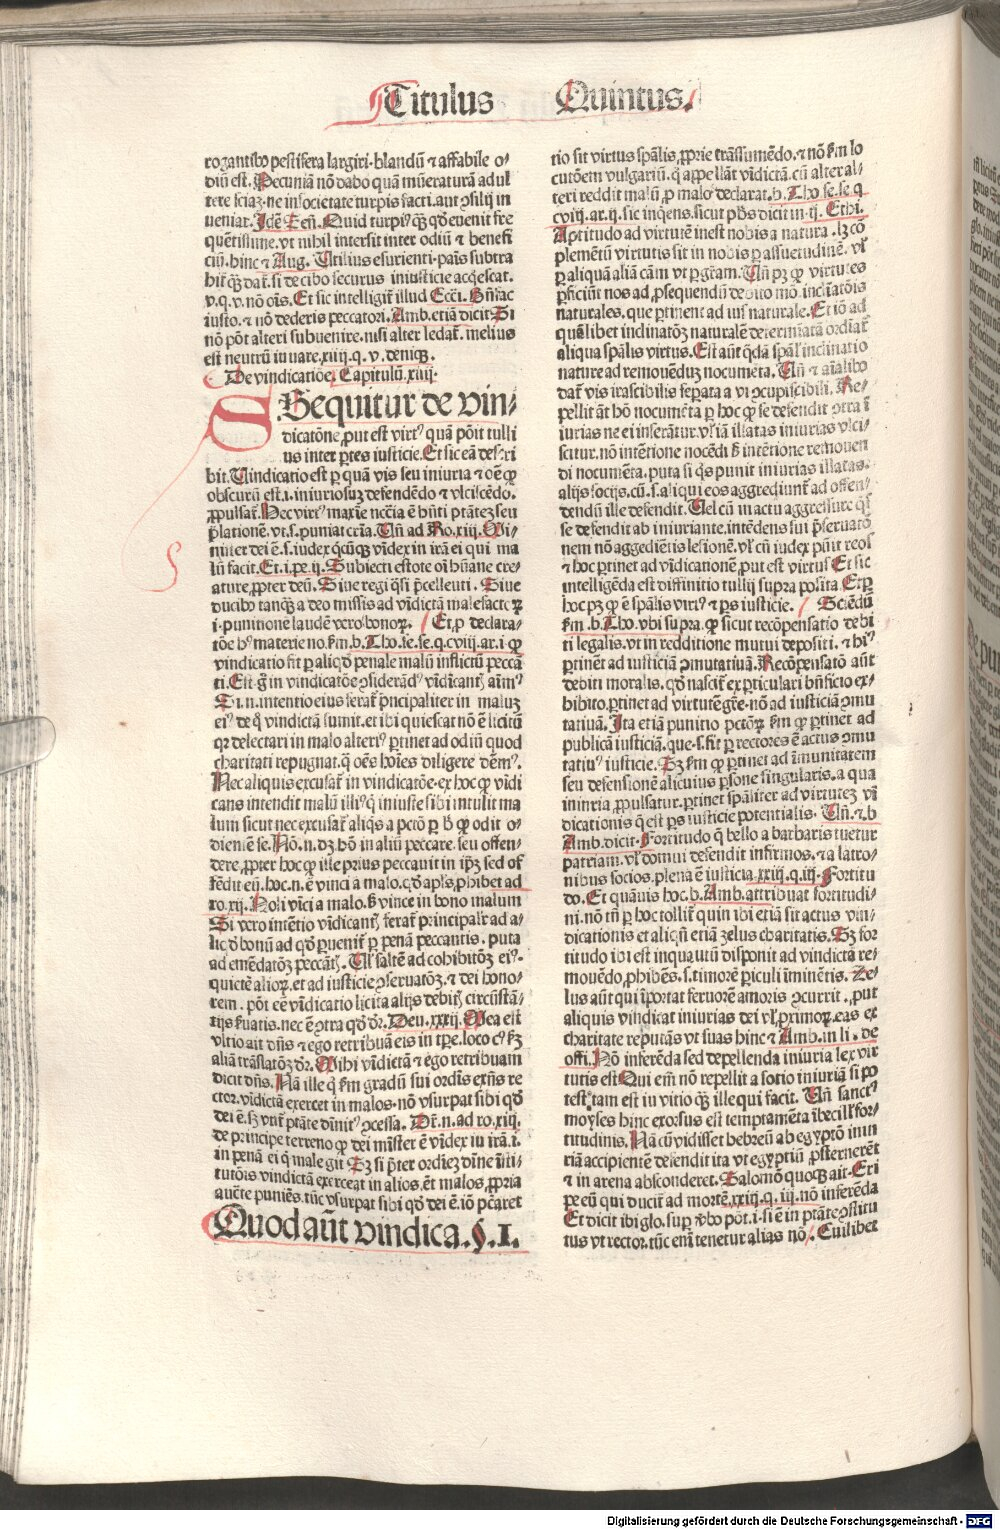 Titulus Quintus.
rogantibꝰ pestifera largiri. blandū ⁊ affabile o⸗
diū est. Pecuniā nō dabo quā mūeraturā adul
tere sciaꝫ. ne in societate turpis facti. aut ꝯsilij in
ueniar. Idē Een̄. Quid turpiꝰ qꝫ qd euenit fre
quētissime. vt nihil intersit inter odiū ⁊ benefi
ciū. hinc ⁊ Aug. Utilius esurienti panis subtra
hit̄ qꝫ dat̄. si de cibo securus iniusticie acq̄escat.
v. q. v. nō oīs. Et sic intelligit̄ illud Ecci. Bn̄fac
iusto. ⁊ nō dederis peccatori. Amb. etiā dicit Si
nō pōt alteri subuenire. nisi alter ledat̄. melius
est neutrū iuuare. xiiij. q. v. deniqꝫ.
De vindicatiōe. Capitulū. xiiij.
Sequitur de vin⸗
dicatōne ꝓut est virtꝰ quā pōit tulli
us inter ꝑtes iusticie. Et sic eā descri
bit. Uindicatio est ꝑ quā vis seu iniuria ⁊ oē qd
obscurū est. i. iniuriosuꝫ defendēdo ⁊ vlciscēdo.
ꝓpulsat̄. Hec virtꝰ maxīe nccīa ē hn̄ti ptātez seu
p̄lationē. vt. s. puniat crīa. Un̄ ad Ro. xiij. Mi⸗
nister dei ē. s. iudex qcūqꝫ vīdex in irā ei qui ma
lū facit. Et. i. pe. ij. Subiecti estote oī hūane cre⸗
ature ꝓpter deū. Siue regi qsi p̄cellenti. Siue
ducibꝰ tanqꝫ a deo missis ad vīdictā malefactoꝝ
i. punitionē laudē vero bonoꝝ. Et ꝓ declara⸗
tōe hꝰ materie no. km̄. b. Tho. se. se. q. cviij. ar. i ꝙ
vindicatio fit ꝑ aliqd penale malū inflictū pecca
ti. Est g̃ in vindicatōe ꝯsiderādꝰ vīdicantꝭ aīmꝰ
Si. n. intentio eius ferat̄ pn̄cipaliter in maluꝫ
eiꝰ de q̄ vindictā sumit. et ibi quiescat nō ē licitū
qꝛ delectari in malo alteriꝰ ꝑtinet ad odiū quod
charitati repugnat. q̄ oēs hoīes diligere dēmꝰ.
Nec aliquis excusat̄ in vindicatōe. ex hoc ꝙ vīdi
cans intendit malū illiꝰ q̄ iniuste sibi intulit ma
lum sicut nec excusat̄ aliqs a pctō ꝑ h̄ ꝙ odit o⸗
dientē se. Nō. n. dꝫ hō in aliū peccare. seu offen⸗
dere. ꝓpter hoc ꝙ ille prius peccauit in ip̄ꝫ sed of
fēdit eū. hoc. n. ē vinci a malo. qd apls ꝓhibet ad
ro. xij. Noli vīci a malo. s̄ vince in bono malum
Si vero intētio vīdicantꝭ ferat̄ principalr̄ ad a⸗
liqd bonū ad qd ꝑuenit̄ ꝑ penā peccantis. puta
ad emēdatōꝫ peccātꝭ. Ul̄ saltē ad cohibitōꝫ eiꝰ.
quietē alioꝝ. et ad iusticie ꝯseruatōꝫ. ⁊ dei hono⸗
rem. pōt eē vīdicatio licita alijs debitꝭ circūstā⸗
tijs s̄uatis. nec ē ꝯtra qd dr̄. Deu. xxxij. Mea est
vltio ait dn̄s ⁊ ego retribuā eis in tp̄e. loco cꝰ ßꝫ
aliā trāslatōꝫ dr̄. Mihi vīdictā ⁊ ego retribuam
dicit dn̄s. Nā ille q̄ km̄ gradū sui ordīs exn̄s re
ctor. vīdictā exercet in malos. nō vsurpat sibi qd
dei ē. sꝫ vtit̄ ptāte dīnitꝰ ꝯcessa. Dr̄. n. ad ro. xiij.
de principe terreno ꝙ dei mīster ē vīdex in irā. i.
in penā ei q̄ male git Sꝫ si p̄ter ordīeꝫ dīne īsti⸗
tutōis vindictā exerceat in alios. et̄ malos. ꝓpria
aucte puniēs. tūc vsurpat sibi qd dei ē. iō pctaret
Quod aūt vindica. §. 1.
tio sit virtus spālis. ꝓprie trāssumēdo. ⁊ nō km̄ lo
cutōem vulgariū. q̄ appellāt vīdictā. cū alter al⸗
teri reddit malū ꝓ malo declarat. b. Tho se. se. q
cviij. ar. ij. sic inq̄ens. sicut phs dicit in ij. Ethi.
Aptitudo ad virtutē inest nobis a natura. lꝫ cō
plementū virtutis sit in nobis ꝑ assuetudinē. vl̄
ꝑ aliquā aliā cām vt ꝑ gr̄am. Un̄ pꝫ ꝙ virtutes
ꝑficiūt nos ad ꝓsequendū debito mō. inclīatōis
naturales. que ꝑtinent ad ius naturale. Et iō ad
quālibet inclinatōꝫ naturalē determīatā ordiat̄
aliqua spālis virtus. Est aūt qdā spāl' inclinatio
nature ad remouēduꝫ nocumēta. Un̄ ⁊ aīalibꝰ
dat̄ vis irascibilis seꝑata a vi ꝯcupiscibili. Re⸗
pellit aūt hō nocumēta ꝑ hoc ꝙ se defendit ꝯtra ī
iurias ne ei inferāt̄ur. vl̄ iā illatas iniurias vlci⸗
scitur. nō intētione nocēdi s̄ intētione remouen
di nocumēta. puta si qs punit iniurias illatas.
alijs socijs. cū. s. aliqui eos aggrediunt̄ ad offen⸗
dendū ille defendit. Uel cū in actu aggressure qs
se defendit ab iniuriante. intēdens sui p̄seruatō
nem nō aggediētis lesionē. vl̄ cū iudex pūit reos
⁊ hoc ꝑtinet ad vīdicationē. put est virtus Et sic
intelligēda est diffinitio tullij supra posita Et ꝑ
hoc pꝫ ꝙ ē spālis virtꝰ ⁊ ps iusticie. Sciēdū
km̄. b. Tho. vbi supra. ꝙ sicut recōpensatio debi
ti legalis. vt in redditione mutui depositi. ⁊ hꝰ
ꝑtinēt ad iusticiā ꝯmutatiuā. Recōpensatō aūt
debiti moralis. qd nascit̄ ex ꝑticulari bn̄ficio ex⸗
hibito. ꝑtinet ad virtutē gr̄e. nō ad iusticiā ꝯmu
tatiuā. Ita etiā punitio pctōꝝ km̄ ꝙ ꝑtinet ad
publicā iusticiā. que. s. fit ꝑ rectores ē actus ꝯmu
tatiuꝰ iusticie. Sꝫ km̄ ꝙ ꝑtinet ad īmunitatem
seu defensionē alicuius ꝑsone singularis. a qua
iniuria ꝓpulsatur. ꝑtinet spālit̄er ad virtuteꝫ vī
dicationis q̄ est ps iusticie potentialis. Un̄. ⁊. b
Amb. dicit. Fortitudo q̄ bello a barbaris tuetur
patriam. vl̄ domui defendit infirmos. ⁊ a latro⸗
nibus socios. plena ē iusticia. xxiij. q. iij. Fortitu
do. Et quāuis hoc. b. Amb. attribuat fortitudi⸗
ni. nō tn̄ ꝑ hoc tollit̄ quin ibi etiā sit actus vin⸗
dicationis et aliqn̄ etiā zelus charitatis. Sꝫ for
titudo ibi est inquātū disponit ad vindictā re⸗
mouēdo ꝓhibēs. s. timorē ꝑiculi īminētis. Ze⸗
lus aūt qui īportat feruorē amoris ꝯcurrit. put
aliquis vindicat iniurias dei vl̄ ꝓximoꝝ. eas ex
charitate reputās vt suas hinc ⁊ Amb. in li. de
offi. Nō inferēda sed depellenda iniuria lex vir
tutis est Qui em̄ nō repellit a sotio iniuriā si po
test. tam est in vitio qꝫ ille qui facit. Un̄ sanctꝰ
moyses hinc exorsus est temptamēta ībecill' for⸗
titudinis. Nā cū vidisset hebreū ab egyptō iniu
riā accipientē defendit ita vt egyptiū ꝓsterneret
⁊ in arena absconderet. Salomō quoqꝫ ait. Eri
pe eū qui ducit̄ ad mortē. xxiij. q. iij. nō inferēda
Et dicit ibi glo. sup ꝟbo pōt. i. si ē in ptāte ꝯstitu
tus vt rector. tūc em̄ tenetur alias nō. Cuilibet
Digitalisierung gefördert durch die Deutsche Forschungsgemeinschaft - DFG